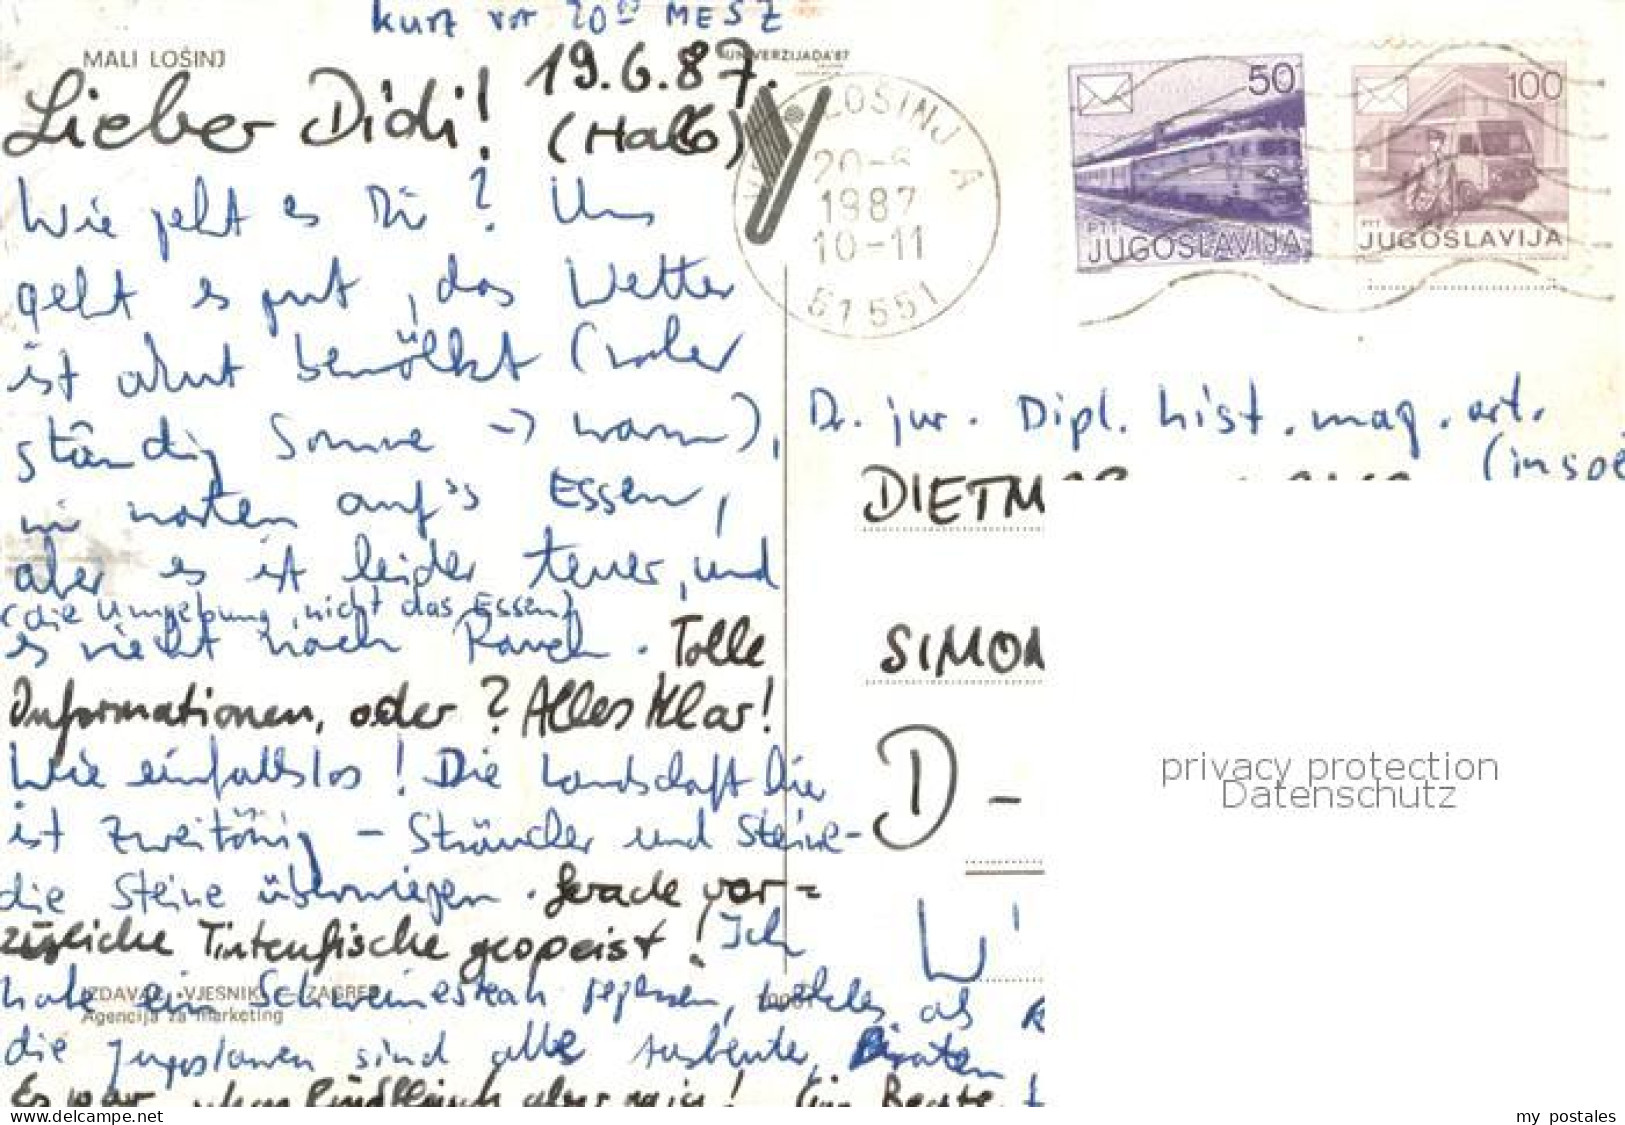 kurz vor 20⁰⁰ MESZ
MALI LOŠINJ
UNIVERZIJADA'87
19.6.87.
Lieber Didi!
(Hallo)
LOŠINJ A
1987
10-11
51551
50
PTT
JUGOSLAVIJA
100
PTT
JUGOSLAVIJA
Wie geht es Dir? Uns
geht es gut, das Wetter
ist bewölkt (
ständig Sonne → warm),
wir warten auf's Essen,
aber es ist leider teuer, und
(die Umgebung, nicht das Essen)
es riecht nach Rauch. Tolle
Informationen, oder? Alles Klar!
Wie einfallslos! Die Landschaft hier
ist zweitönig - Sträucher und Steine -
die Steine überwiegen. Gerade vor=
zügliche Tintenfische gespeist! Ich
habe ein Schweinesteak gegessen, welches
die Jugoslawen sind alle Piraten
Es war aber
IZDAVAČ »VJESNIK« - ZAGREB
Agencija za marketing
Dr. jur. Dipl. hist. mag. art.
DIETM
SIMON
D -
W
privacy protection
Datenschutz
delcampe.net
my_postales